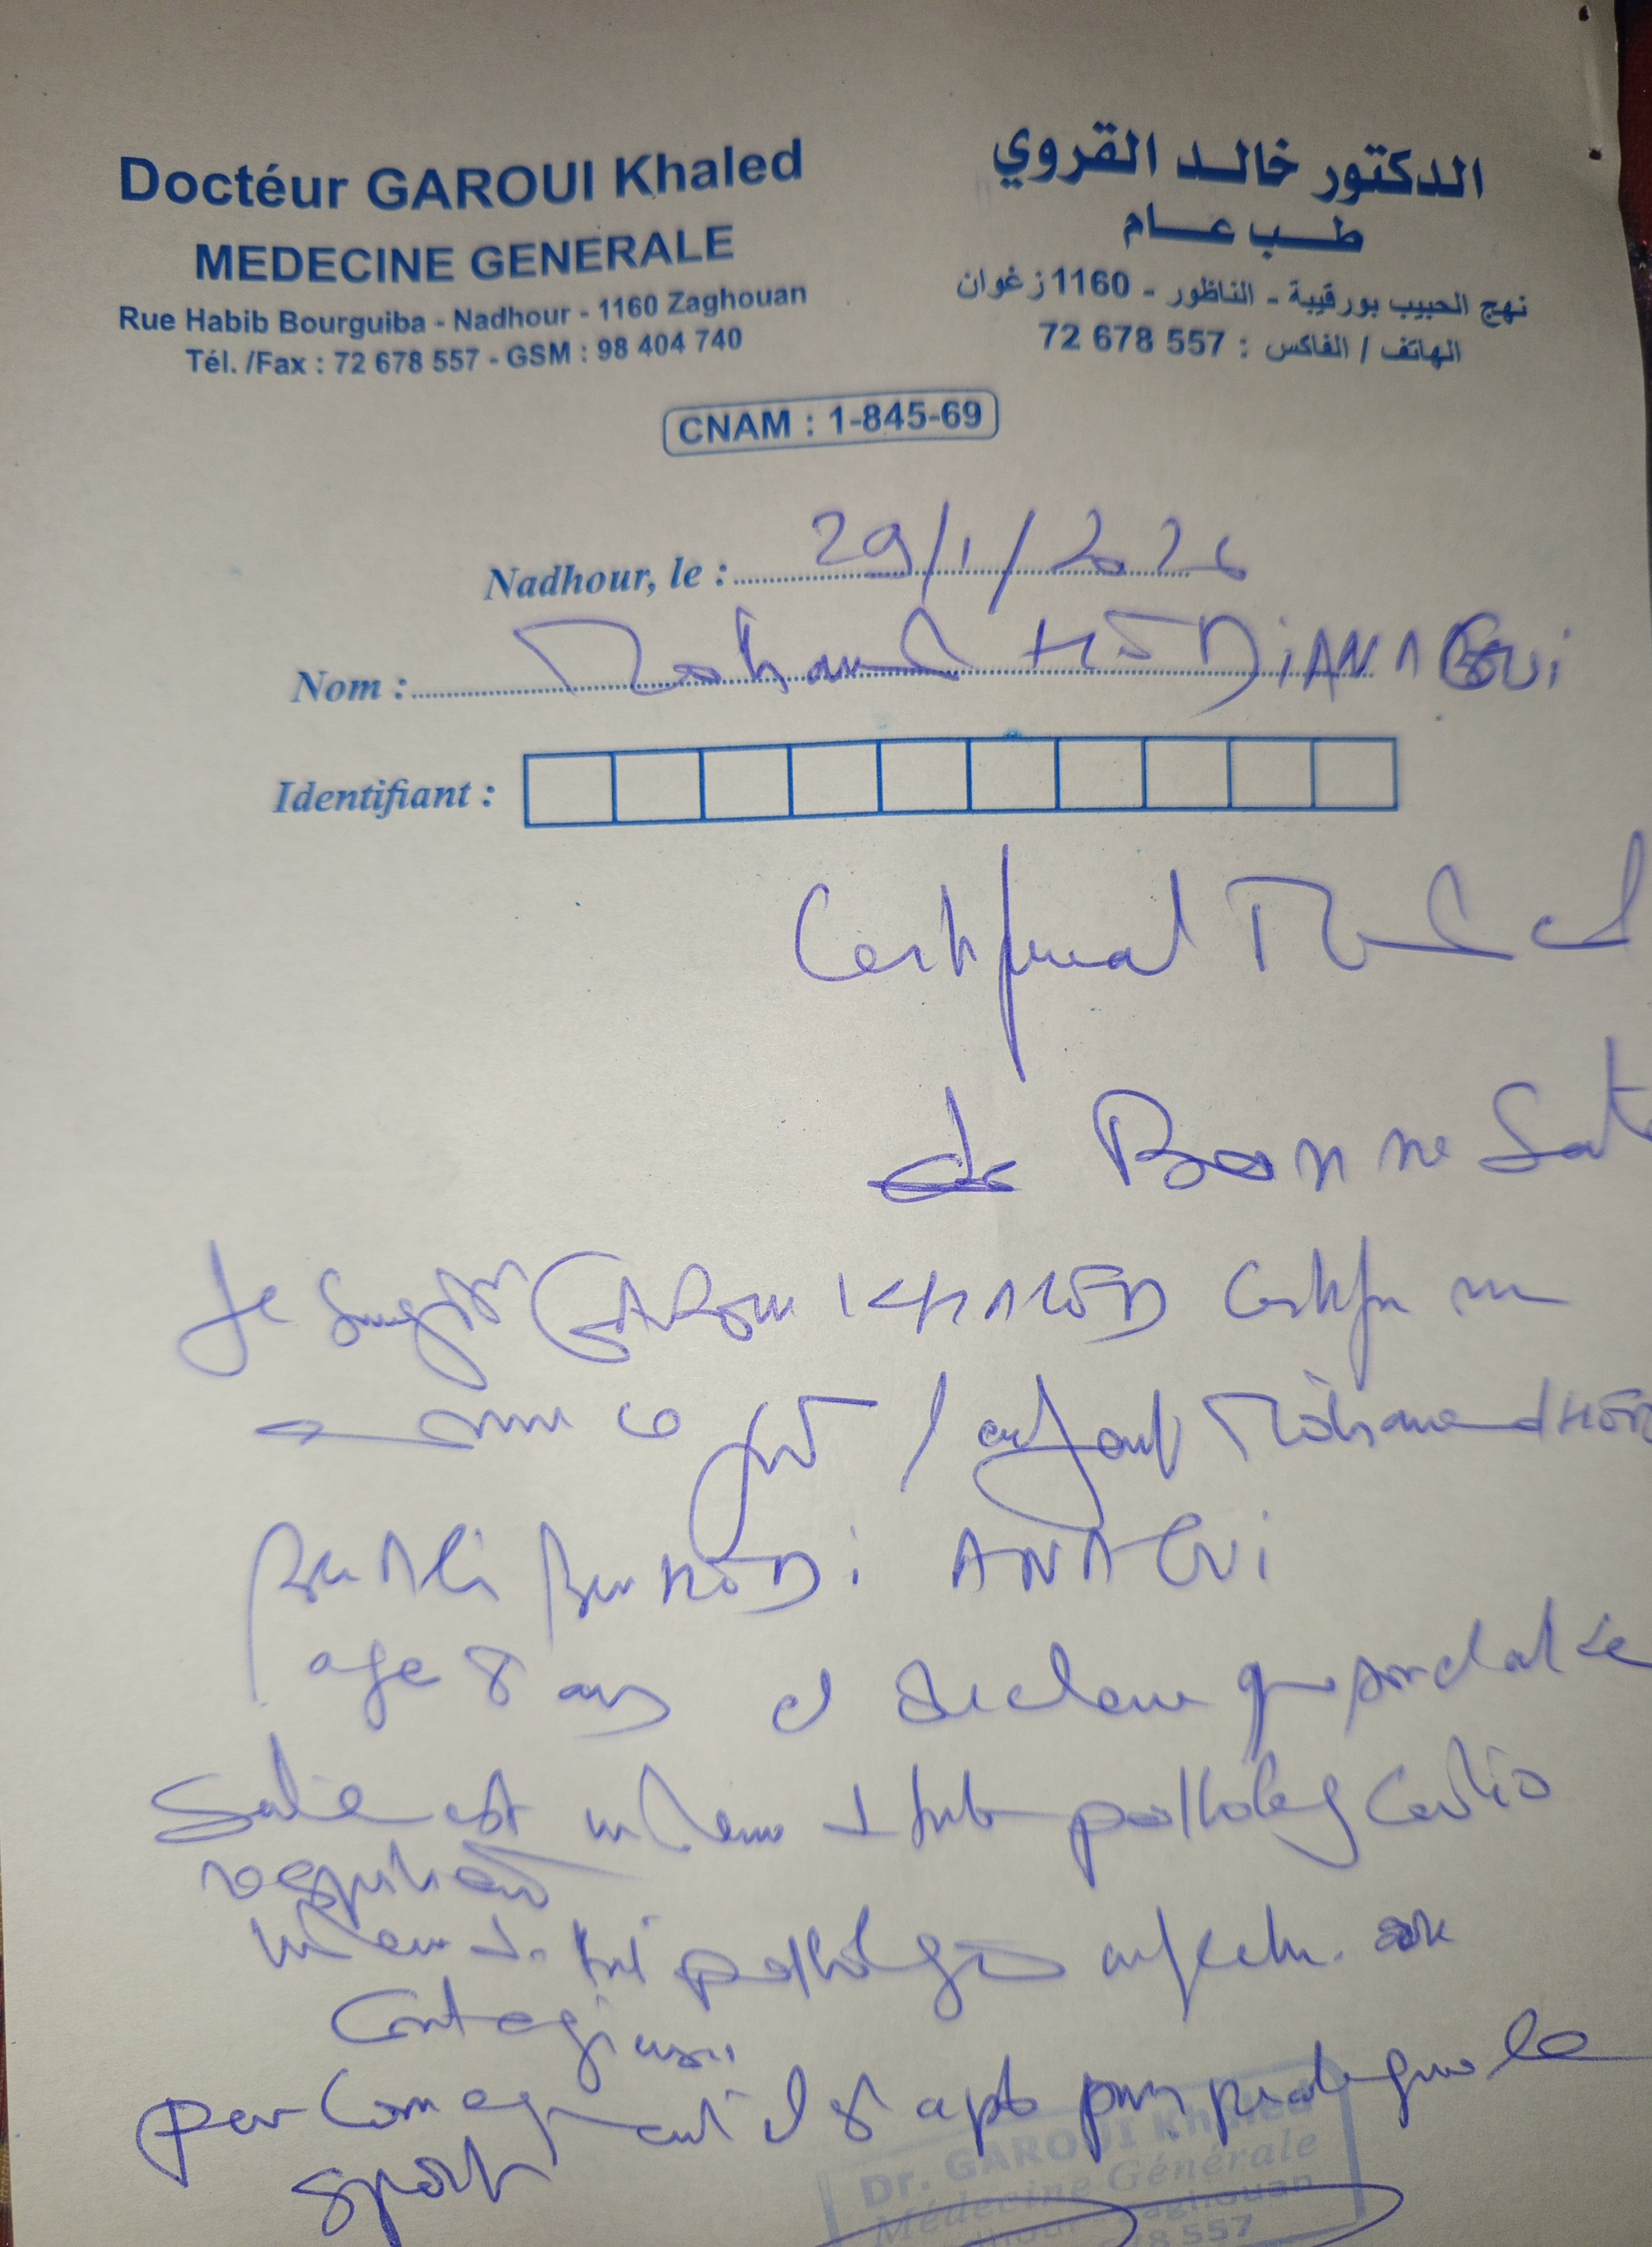 Doctéur GAROUI Khaled
MEDECINE GENERALE
Rue Habib Bourguiba - Nadhour - 1160 Zaghouan
Tél. /Fax : 72 678 557 - GSM : 98 404 740
الدكتور خالد القروي
طب عام
نهج الحبيب بورقيبة - الناظور - 1160 زغوان
الهاتف / الفاكس : 557 678 72
CNAM : 1-845-69
Nadhour, le : 29/1/2026
Nom : Mohamed
Identifiant :
Certificat Medical
de Bonne Sante
Je GAROUI KHALED Certifie
ce jour l'enfant Mohamed
Ben Ali Ben
age 8 ans et declare que son etat de
Sante est pathologie Cardio
respiratoire
pathologie
Contagieuse
par Consequent il est apte pour pratiquer le
sport
Dr. GAROUI Khaled
Médecine Générale
Zaghouan
78 557